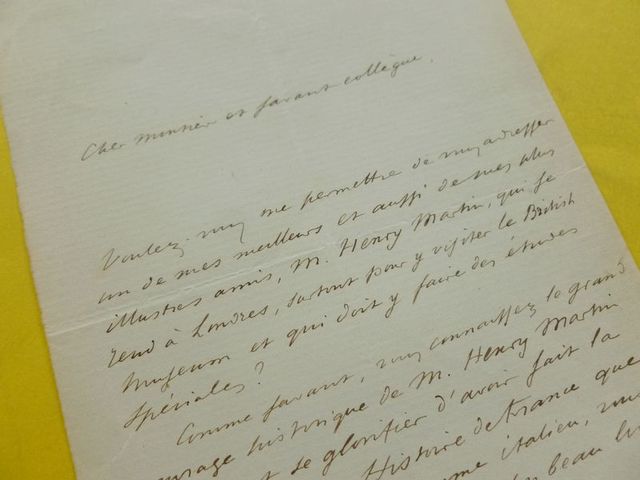 Cher monsieur et savant collègue,
Voulez-vous me permettre de vous adresser
un de mes meilleurs et aussi de mes plus
illustres amis, M. Henry Martin, qui se
rend à Londres, surtout pour y visiter le British
Museum et qui doit y faire des études
spéciales?
Comme savant, vous connaissez le grand
ouvrage historique de M. Henry Martin
et se glorifier d'avoir fait la
Histoire de France que
italien, vous
beau